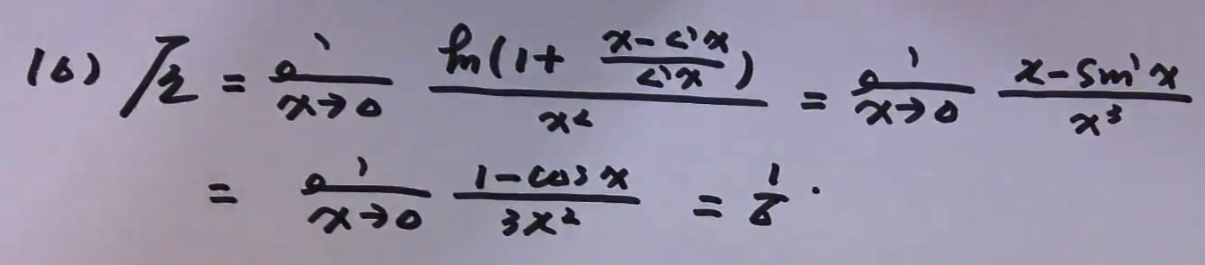 (6) 原 = lim_{x→0} \frac{ln(1+\frac{x-sin x}{sin x})}{x²} = lim_{x→0} \frac{x-sin x}{x³}
= lim_{x→0} \frac{1-cos x}{3x²} = \frac{1}{6}.